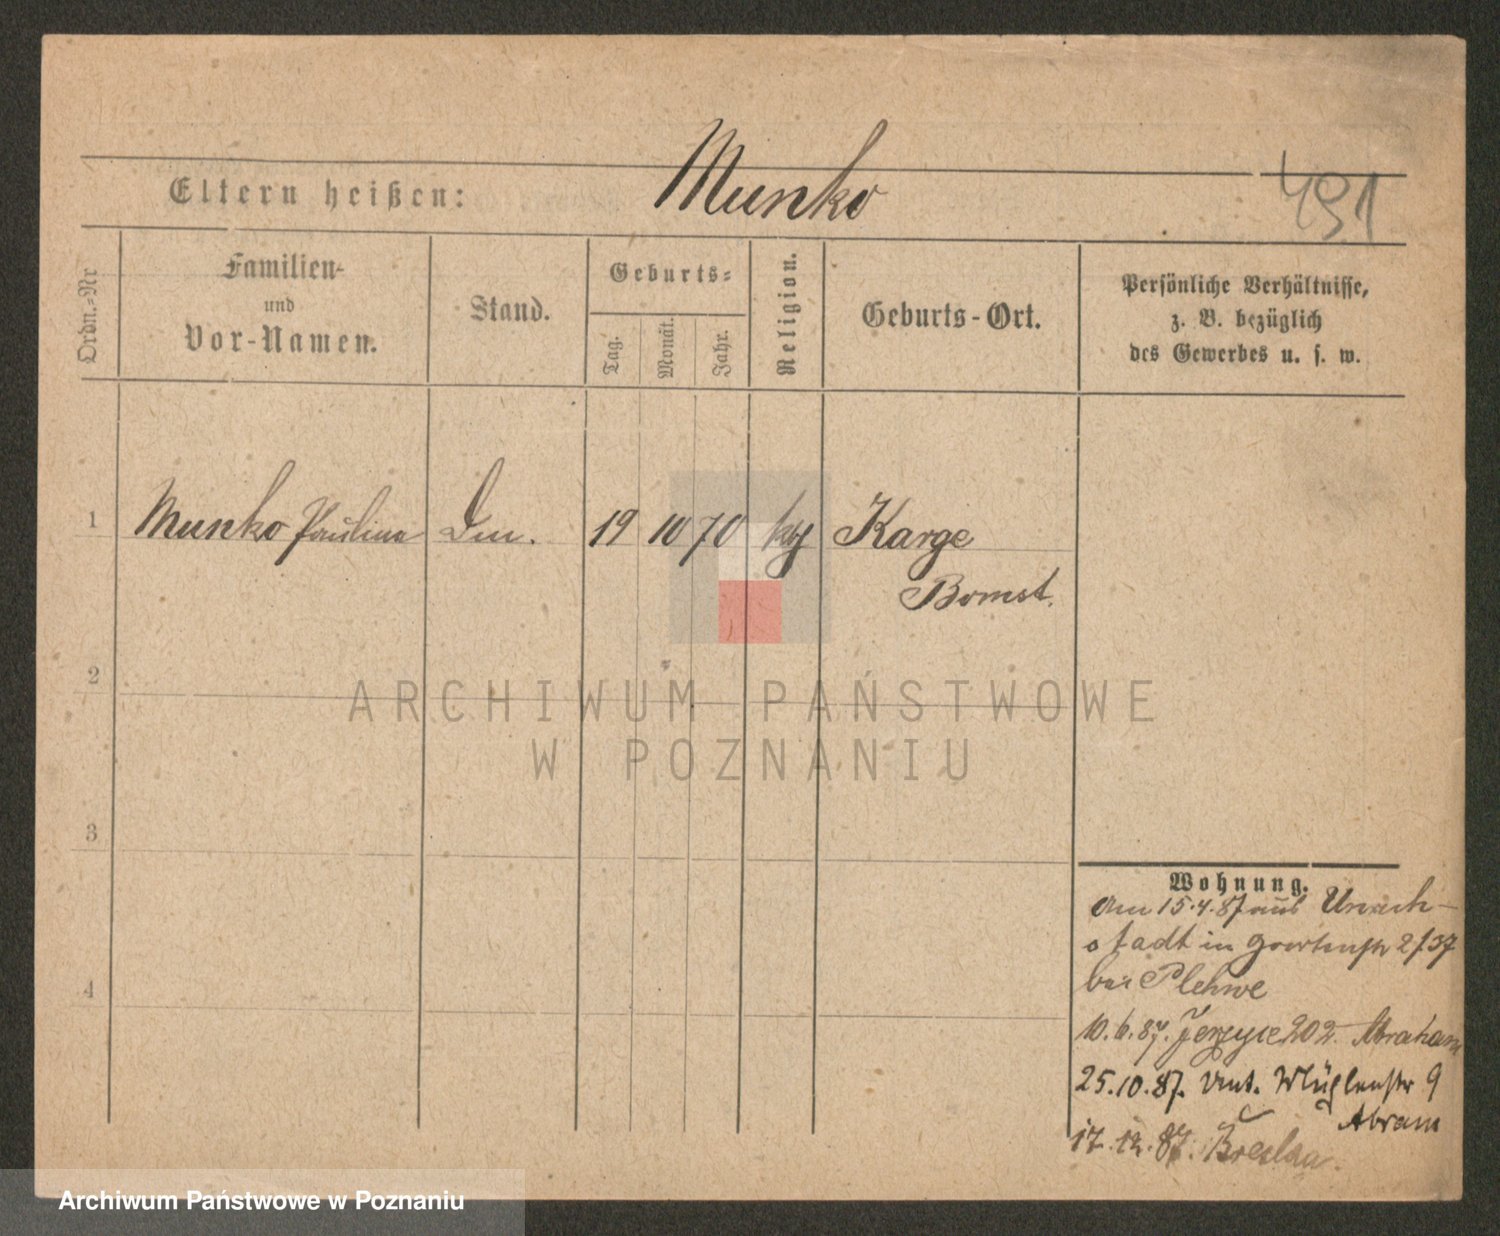 Munko
491
Eltern heißen:
Ordn.-Nr
Familien-
und
Vor-Namen.
Stand.
Geburts-
Tag.
Monat.
Jahr.
Religion.
Geburts-Ort.
Persönliche Verhältnisse,
z. B. bezüglich
des Gewerbes u. s. w.
1 Munko Paulina 19 10 70 Karge
Bomst.
2
ARCHIWUM PAŃSTWOWE
W POZNANIU
3
4
Wohnung.
Am 15.4.87 aus Unruh-
stadt in Gartenstr 2/37
bei Plehwe
10.6.87. Jerzyce 202. Abraham
25.10.87. Unt. Mühlenstr 9
Abram
17.12.87. Breslau.
Archiwum Państwowe w Poznaniu